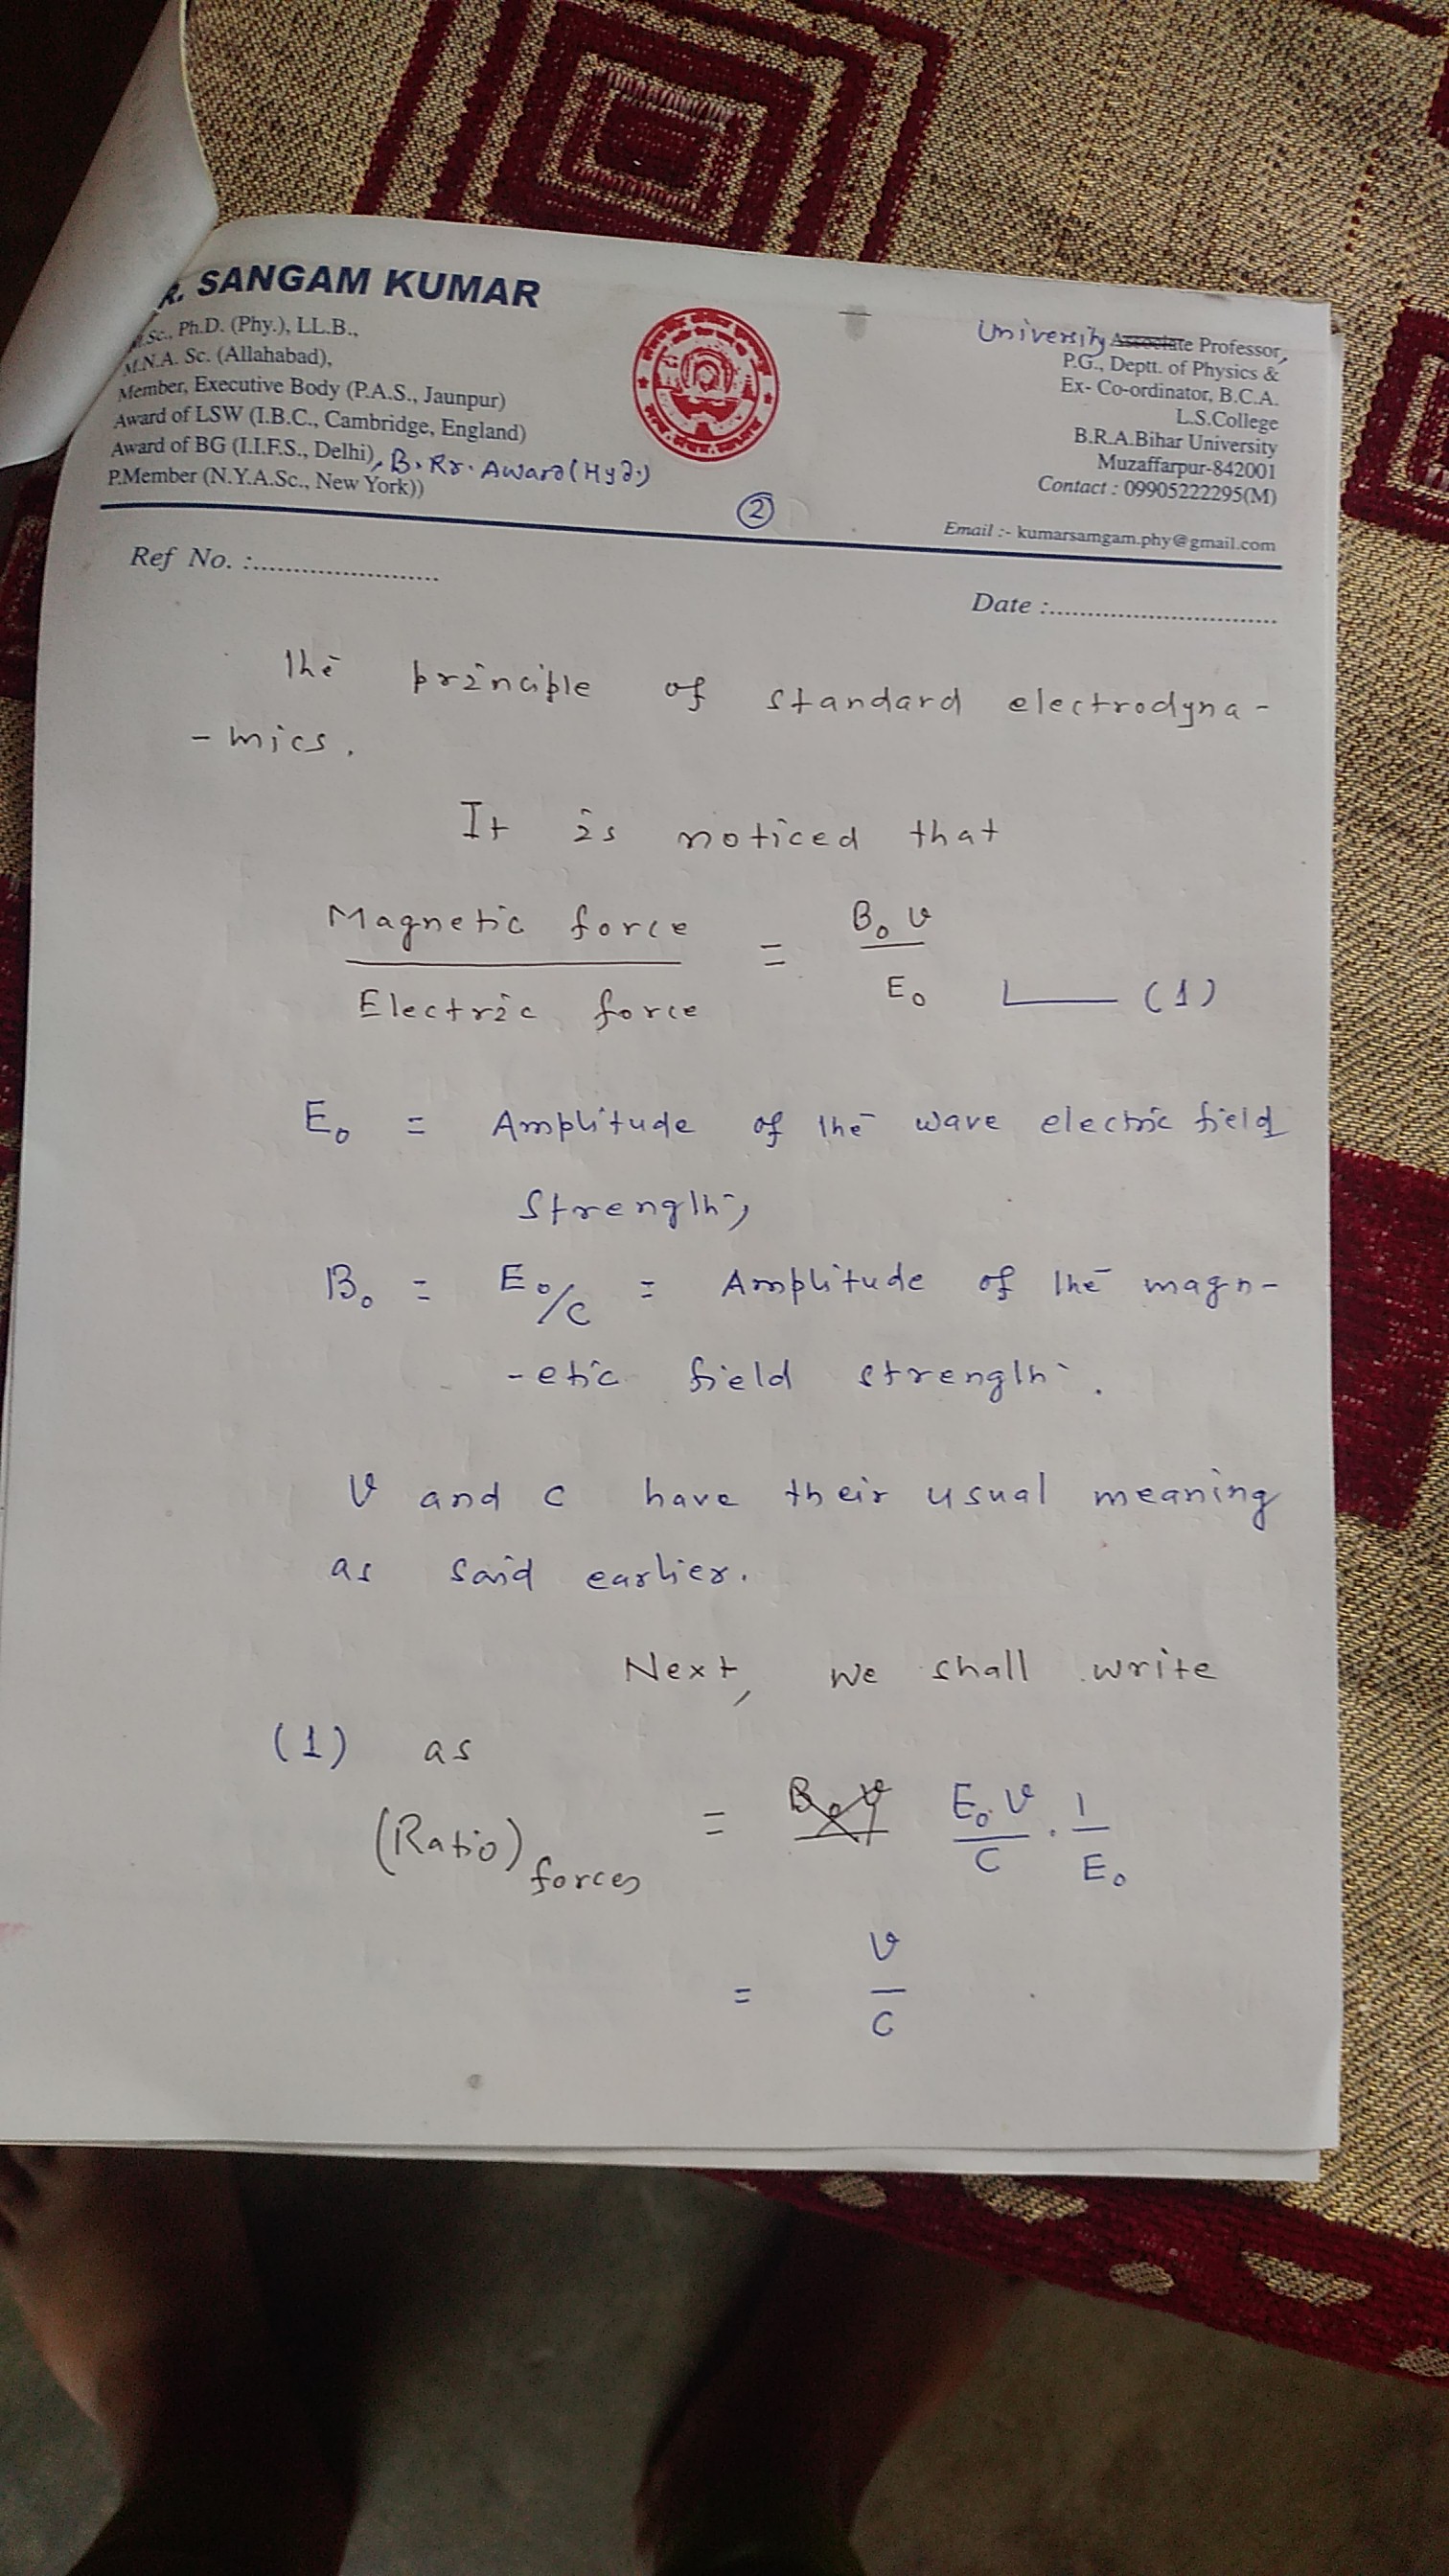 R. SANGAM KUMAR
M.Sc., Ph.D. (Phy.), LL.B.,
M.N.A. Sc. (Allahabad),
Member, Executive Body (P.A.S., Jaunpur)
Award of LSW (I.B.C., Cambridge, England)
Award of BG (I.I.F.S., Delhi), B. Rr. Award (Hyd.)
P.Member (N.Y.A.Sc., New York))
University Associate Professor,
P.G., Deptt. of Physics &
Ex- Co-ordinator, B.C.A.
L.S.College
B.R.A.Bihar University
Muzaffarpur-842001
Contact : 09905222295(M)
2
Email :- kumarsamgam.phy@gmail.com
Ref No. :........................
Date :..............................
the principle of standard electrodyna-
-mics.
It is noticed that
Magnetic force / Electric force = B₀ v / E₀ (1)
E₀ = Amplitude of the wave electric field
strength,
B₀ = E₀/c = Amplitude of the magn-
-etic field strength.
v and c have their usual meaning
as said earlier.
Next, we shall write
(1) as
(Ratio) forces = B₀ v E₀ v / c . 1 / E₀
= v / c